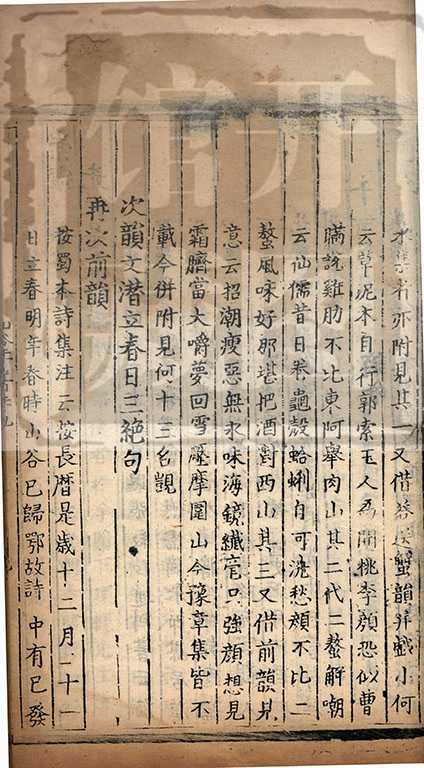 水集者亦附見其一又借答送蟹韻并戲小何
云草泥本自行郭索玉人為開桃李顏恐似曹
瞞說雞肋不比東阿舉肉山其二代二螯解嘲
云仙儒昔日卷龜殼蛤蜊自可洗愁顏不比二
螯風味好那堪把酒對西山其三又借前韻見
意云招潮瘦惡無永味海鏡纖毫只強顏想見
霜臍富大嚼夢回雪壓摩圍山今豫章集皆不
載今併附見何十三名覬
次韻文潛立春日三絕句
再次前韻
按蜀本詩集注云按長曆是歲十二月二十一
日立春明年春時山谷已歸鄂故詩中有已發
开馆